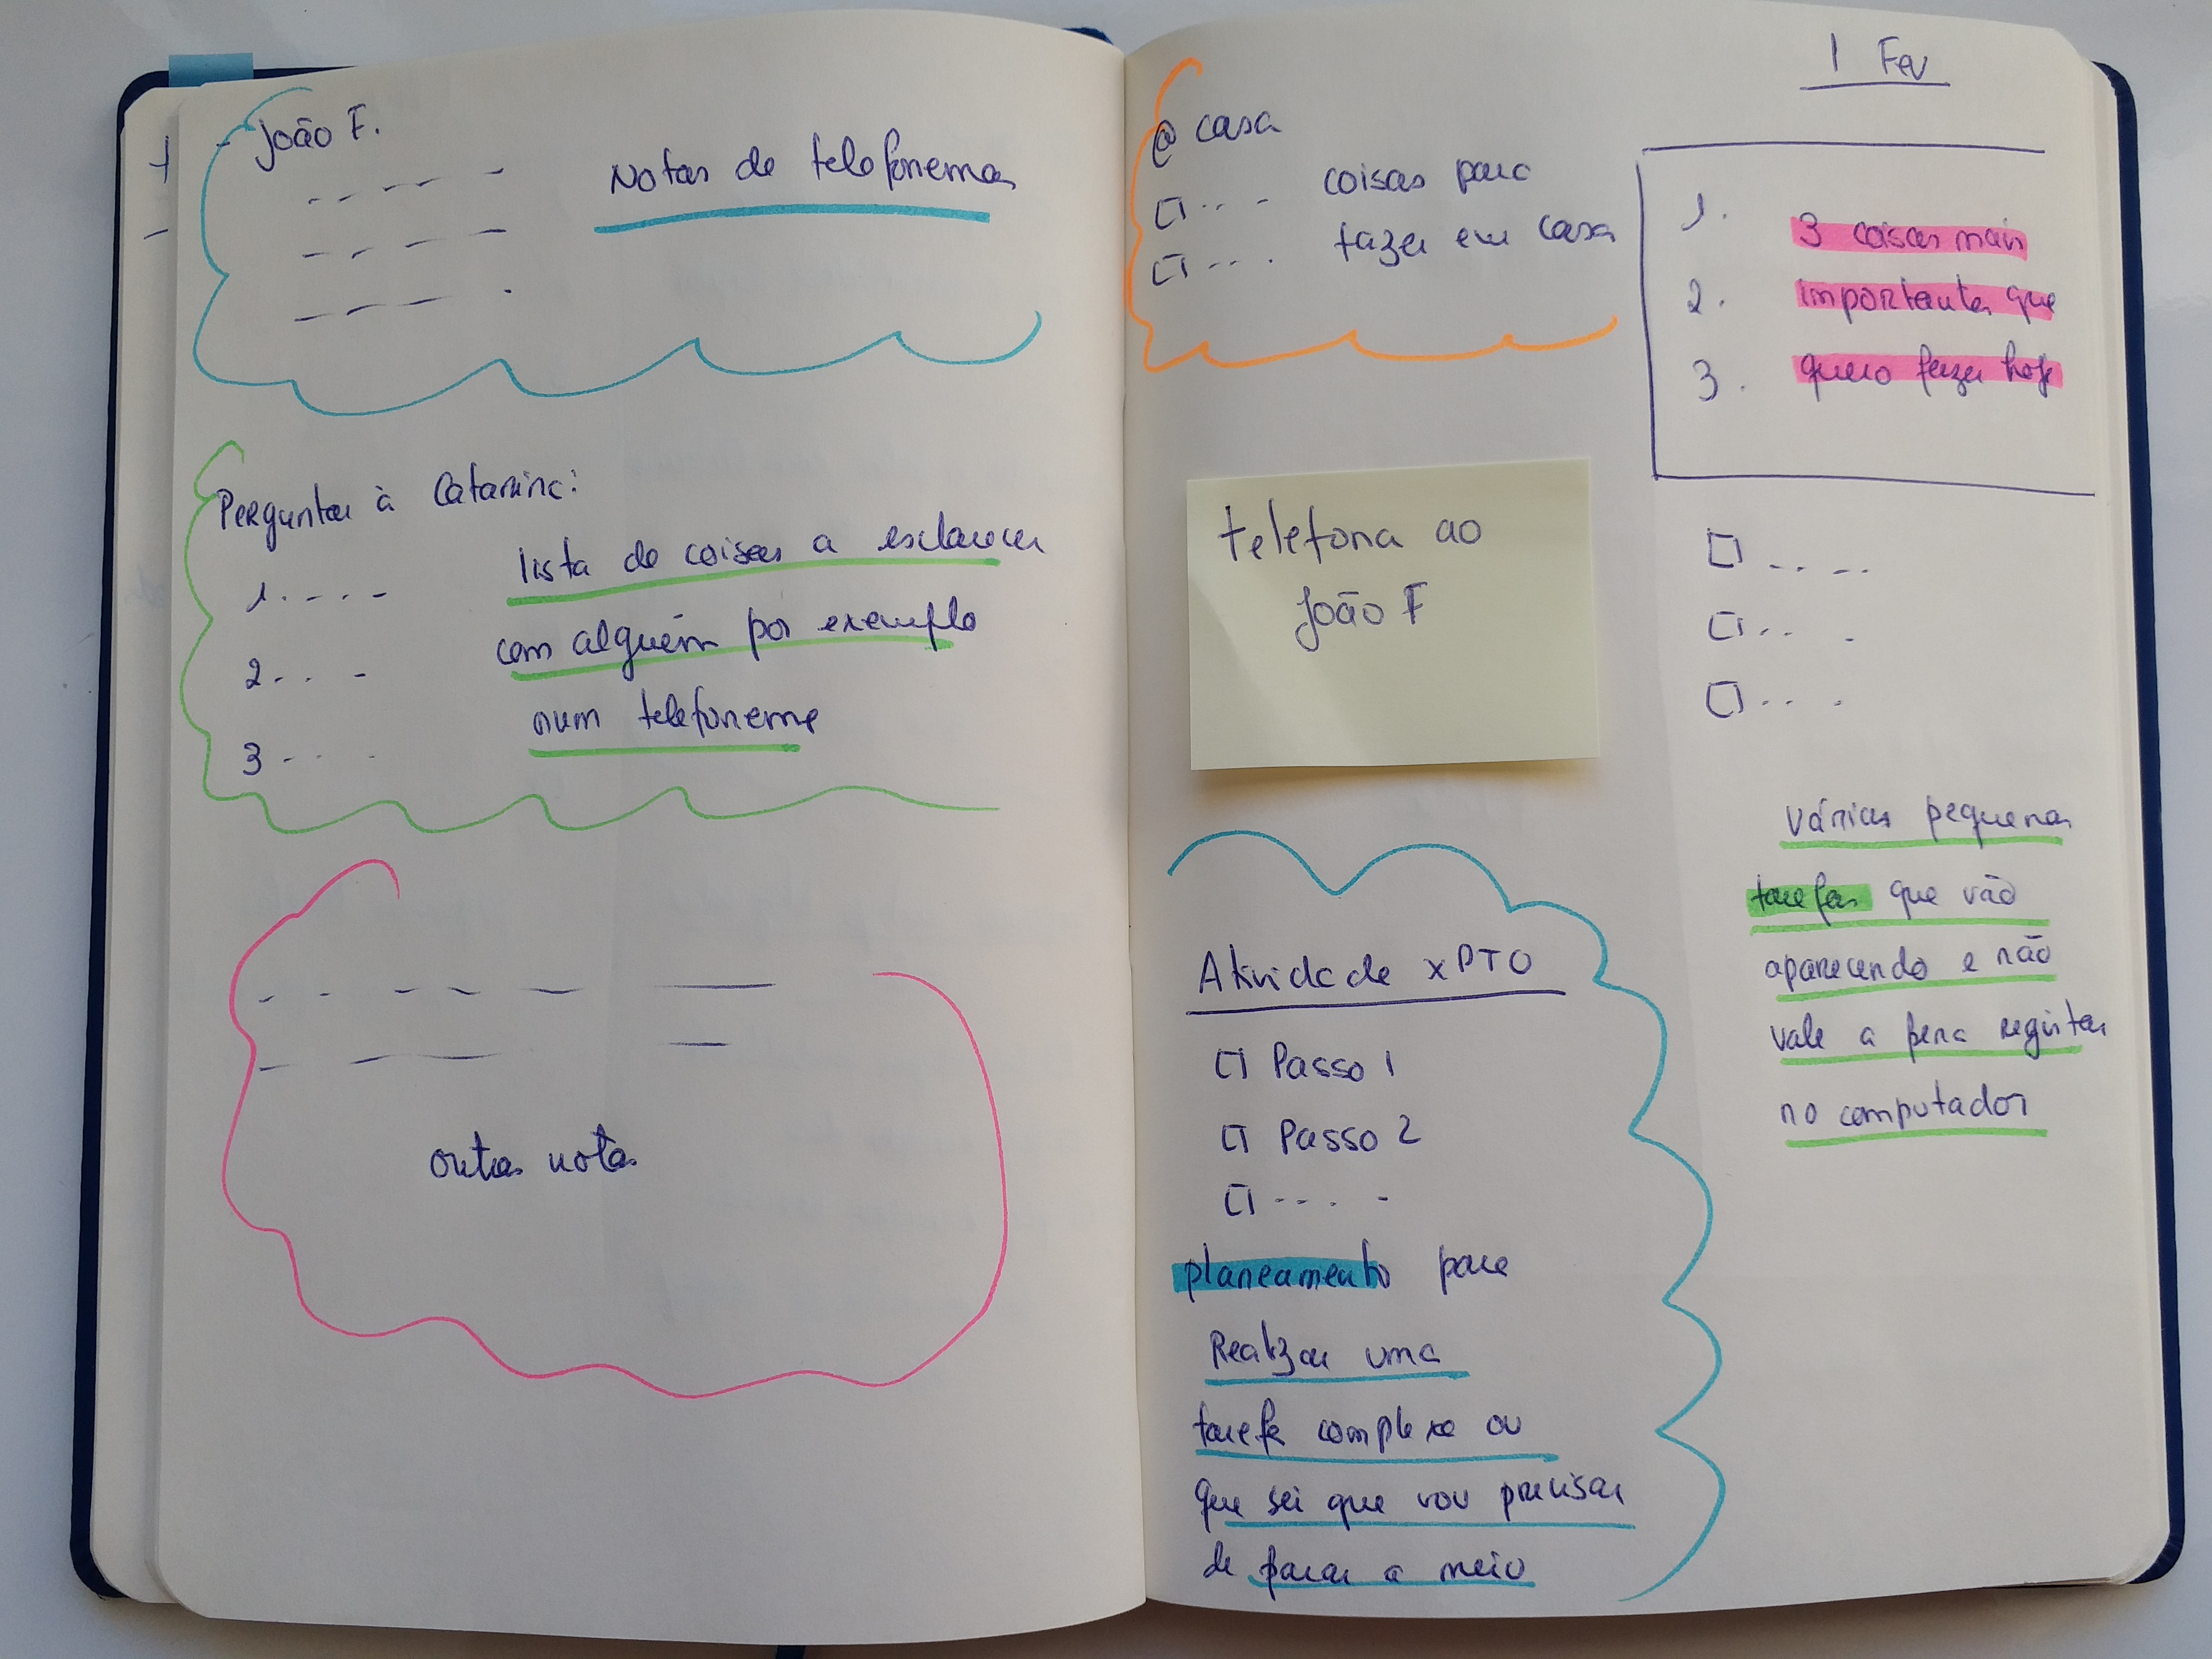 - João F.
Notas de telefonemas
Perguntar à Catarina:
lista de coisas a esclarecer
1.
com alguém por exemplo
2.
num telefonema
3
outras notas
@ casa
coisas para
fazer em casa
telefona ao
João F
Atividade XPTO
Passo 1
Passo 2
planeamento para
Realizar uma
tarefa complexa ou
que sei que vou precisar
de parar a meio
1 Fev
1.
3 coisas mais
2.
importantes que
3.
quero fazer hoje
várias pequenas
tarefas que vão
aparecendo e não
vale a pena registar
no computador